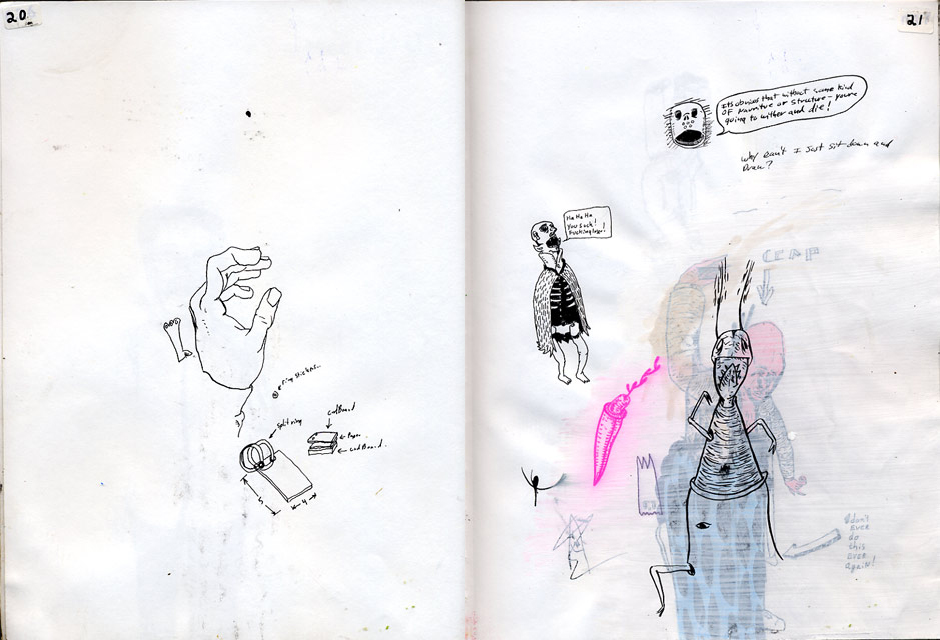 20
Ring stickers...
split ring
cardboard
paper
cardboard..
5
4
21
Its obvious that without some kind
of narrative or structure – you're
going to wither and die!
Why can't I just sit down and
Draw?
Ha Ha Ha
You suck!
Fucking loser!
CRAP
don't
EVER
do
this
EVER
again!